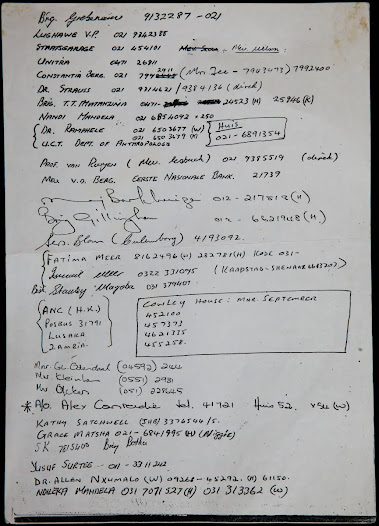 Brig. 9132287 - 021
LUGHAWE V.P. 021 9342388
STAATSGARAGE 021 454101
UNITRA 0471 26811
CONSTANTIA BERG. 021 (Mrs Lee - 7943473) 7992400
DR. STRAUSS 021 9314621 / 9384136 (direk)
BRIG. T.T. MATANZIMA 0471- 24523 (H) 25846 (K)
NANDI MANDELA 021 6854092 x 250
DR. RAMPHELE 021 6503677 (W)
021 650 3679 (K)
U.C.T. DEPT. OF ANTHROPOLOGY
HUIS
021 - 6891354
PROF VAN ROOYEN (Mev. ) 021 9385519 (direk)
MEV V.D. BERG. EERSTE NASIONALE BANK. 21739
012 - 217818 (H)
Brig Gillingham 012 - 6621948 (H)
Sers. Blom (Culemborg) 4193092
FATIMA MEER 8162496 (W) 282781 (H) KODE 031 -
Ismail Meer 0322 331075 (KAAPSTAD - 6383207)
Bis. Stanley Mogoba 031 379407
ANC (H.K.)
POSBUS 31791
LUSAKA
ZAMBIA.
COWLEY HOUSE: MNR SEPTEMBER
452100
457373
4621335
455258
Mnr Gei Odendaal (04592) 244
Mnr Kleinhan (0551) 2981
Mnr (051) 225645
* A/o. Alex Conradie tel. 41721 Huis 52. VSV (W)
KATHY SATCHWELL (JHB) 3376544/5.
GRACE MATSHA 021 - 6841995 (W) (Niggie)
SK 7815600 Brig Botha
YUSUF SURTEE - 011 - 3311242
DR. ALLEN NXUMALO (W) 09268 - 45292. (H) 61150.
NDILEKA MANDELA 031 7071527 (H) 031 313362 (W)